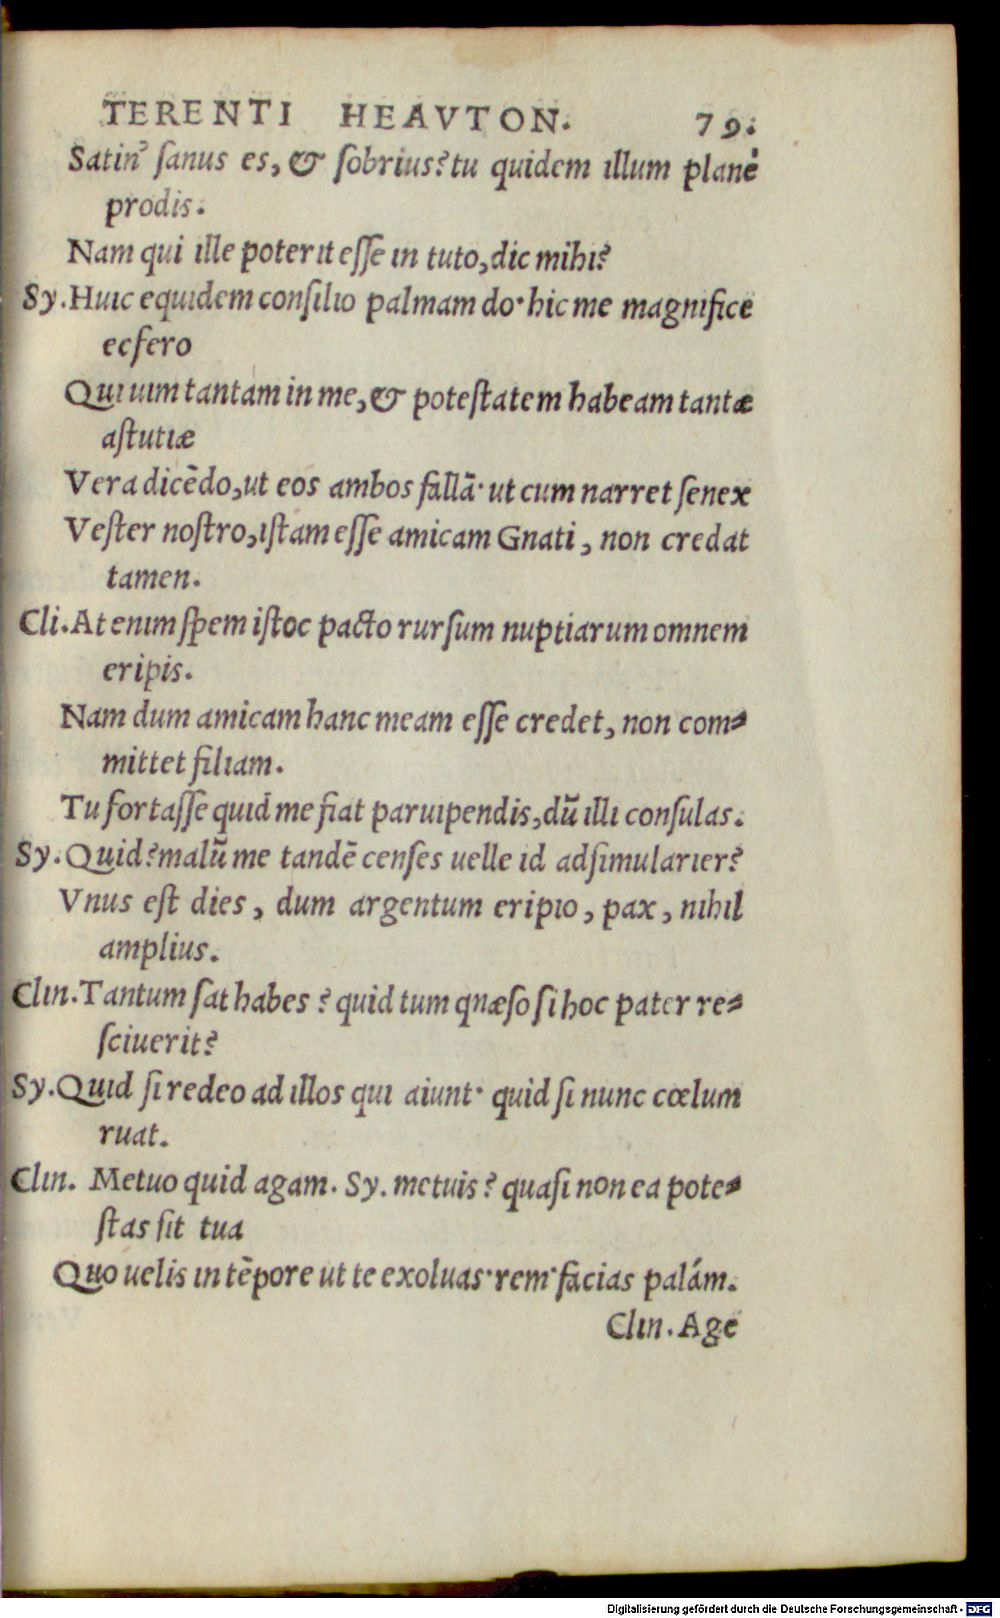 TERENTI HEAVTON. 79.
Satin' ſanus es, & ſobrius? tu quidem illum planè
prodis.
Nam qui ille poterit eſſe in tuto, dic mihi?
Sy. Huic equidem conſilio palmam do· hic me magnifice
ecfero
Qui uim tantam in me, & poteſtatem habeam tantæ
aſtutiæ
Vera dicẽdo, ut eos ambos fallã· ut cum narret ſenex
Veſter noſtro, iſtam eſſe amicam Gnati, non credat
tamen.
Cli. At enim ſpem iſtoc pacto rurſum nuptiarum omnem
eripis.
Nam dum amicam hanc meam eſſe credet, non com-
mittet filiam.
Tu fortaſſe quid me fiat paruipendis, dũ illi conſulas.
Sy. Quid? malũ me tandẽ cenſes uelle id adſimularier?
Vnus eſt dies, dum argentum eripio, pax, nihil
amplius.
Clin. Tantum ſat habes? quid tum quæſo ſi hoc pater re-
ſciuerit?
Sy. Quid ſi redeo ad illos qui aiunt· quid ſi nunc cœlum
ruat.
Clin. Metuo quid agam. Sy. metuis? quaſi non ea pote-
ſtas ſit tua
Quo uelis in tẽpore ut te exoluas· rem· facias palám.
Clin. Age
Digitalisierung gefördert durch die Deutsche Forschungsgemeinschaft - DFG